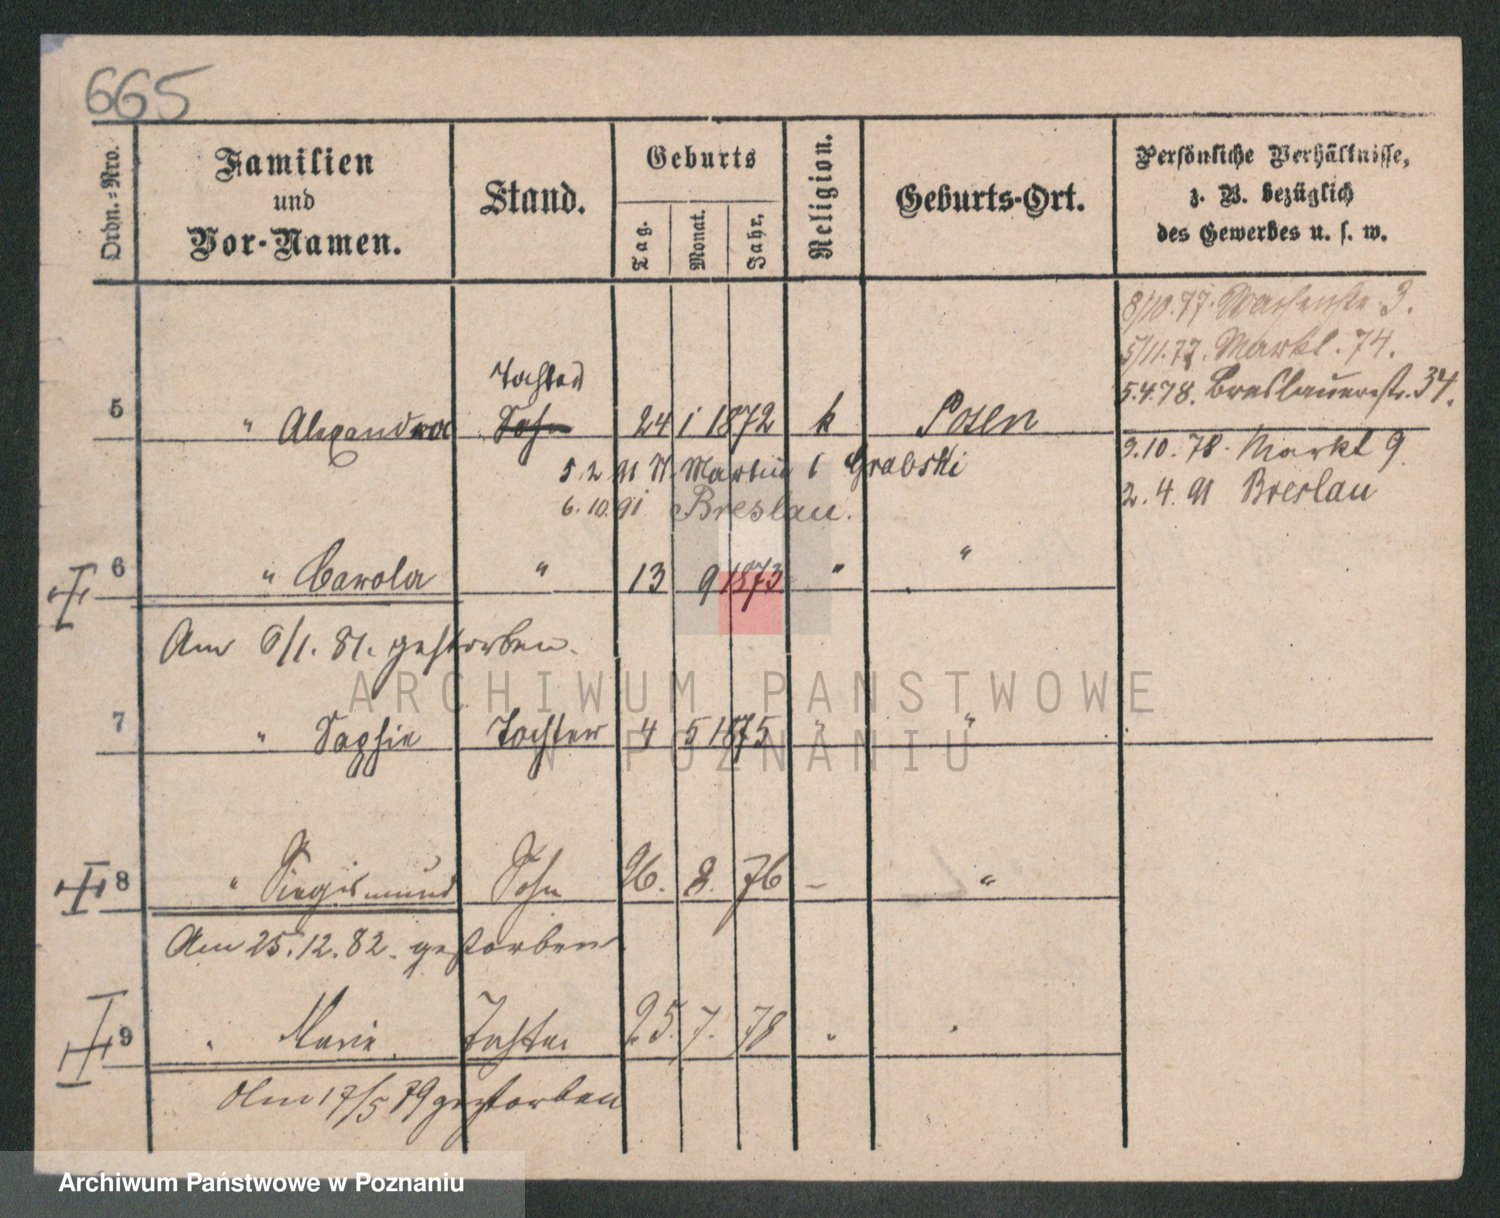 665
Ordn.-Nro.
Familien
und
Vor-Namen.
Stand.
Geburts
Tag.
Monat.
Jahr.
Religion.
Geburts-Ort.
Persönliche Verhältnisse,
z. B. bezüglich
des Gewerbes u. s. w.
8/10.77. 3.
5/11.77. Markt. 74.
5.4.78. Breslauerstr. 34.
Tochter
5 " Alexandra Sohn 24 1 1872 k Posen
9.10.78. Markt 9
5.2.91 St. Martin 6 Grabski
2.4.91 Breslau
6.10.91 Breslau.
6 " Carola " 13 9 1873 " "
Am 6/1. 81. gestorben.
7 " Sophie Tochter 4 5 1875 " "
8 " Siegismund Sohn 26. 8. 76 – "
Am 25.12.82. gestorben
9 " Marie. Tochter 25. 7. 78 " "
Am 17/5 79 gestorben
ARCHIWUM PANSTWOWE
W POZNANIU
Archiwum Państwowe w Poznaniu